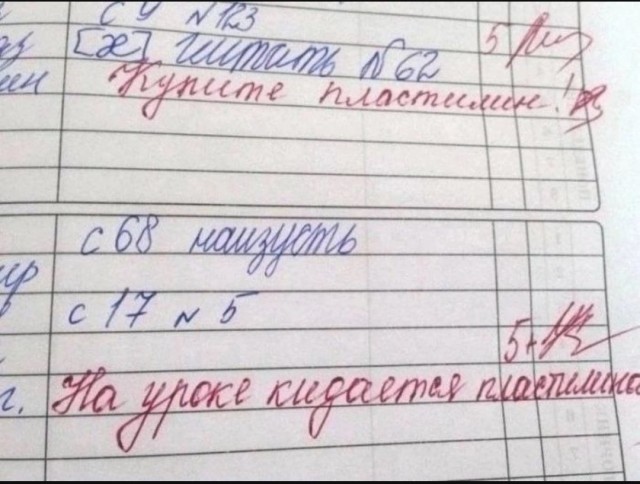 с 9 №123
[х] читать №62
5
Купите пластилин!
с 68 наизусть
с 17 № 5
5+
г. На уроке кидается пластилино